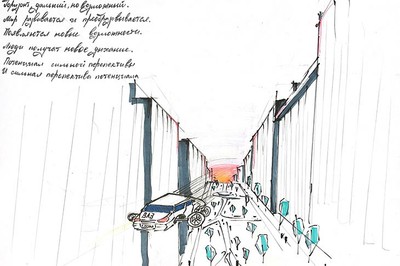 дальний, но возможный.
Мир развивается и преобразовывается.
Появляются новые возможности.
Люди получат новое дыхание.
Потенциал сильной перспективы
И сильная перспектива потенциала
ВАЗ